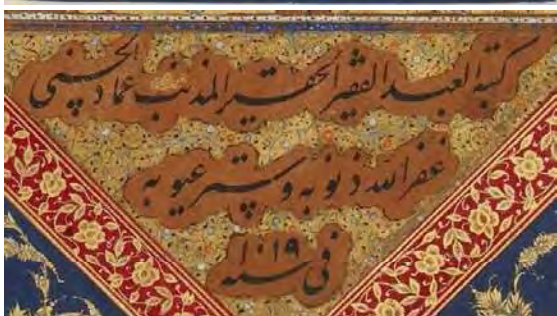 کتبه العبد الفقیر الحقیر المذنب عماد الحسنی
غفر الله ذنوبه و ستر عیوبه
فی سنه ۱۰۱۹